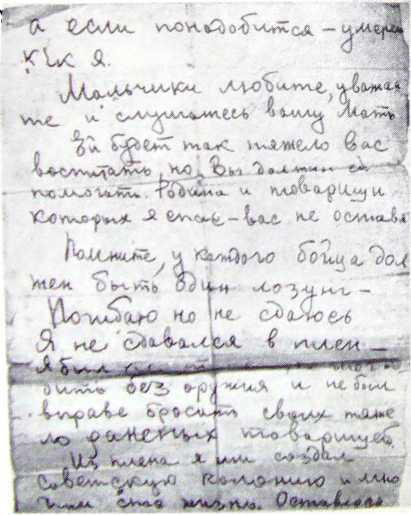 а если понадобится – умереть
как я.
Мальчики любите, уважай
те и слушайтесь вашу мать
Ей будет так тяжело вас
воспитать, но Вы должны ей
помогать. Родина и товарищи
которых я спас – вас не оставя
Помните, у каждого бойца дол
жен быть один лозунг –
Погибаю но не сдаюсь
Я не сдавался в плен –
я был
бить без оружия и не был
вправе бросать своих тяже
ло раненых товарищей.
Из плена я создал
советскую колонию и мно
гим спас жизнь. Оставляю